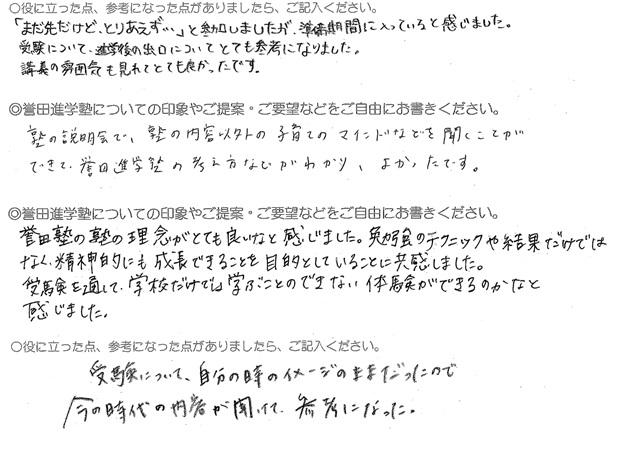 ○役に立った点、参考になった点がありましたら、ご記入ください。
「まだ先だけど、とりあえず…」と参加しましたが、準備期間に入っていると感じました。
受験について、進学後の出口についてとても参考になりました。
講義の雰囲気も見れてとても良かったです。
◎誉田進学塾についての印象やご提案・ご要望などをご自由にお書きください。
塾の説明会で、塾の内容以外の子育てのマインドなどを聞くことが
できて、誉田進学塾の考え方などがわかり、よかったです。
◎誉田進学塾についての印象やご提案・ご要望などをご自由にお書きください。
誉田塾の塾の理念がとても良いなと感じました。勉強のテクニックや結果だけでは
なく、精神的にも成長できることを目的としていることに共感しました。
受験を通して、学校だけでは学ぶことのできない体験ができるのかなと
感じました。
○役に立った点、参考になった点がありましたら、ご記入ください。
受験について、自分の時のイメージのままだったので
今の時代の内容が聞けて、参考になった。